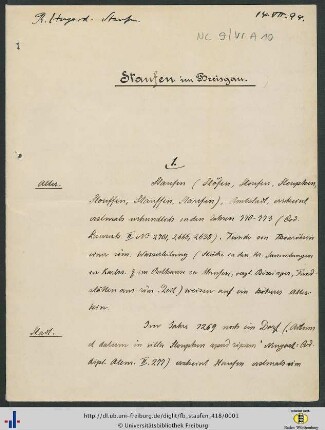 R. Hugard. Staufen
14.VII.94.
NL 9/VI A 10
1
Staufen im Breisgau.
1.
Alter. Staufen (Stöfen, Stoufen,
Stouffen, Stauffen, Staufen), Amtsstadt, erscheint
erstmals urkundlich in den Jahren 770-773 (Cod.
Lauresh. II. No 2701, 2666, 2628). Funde von
einer röm. Wasserleitung (Stücke in der Gr. Sammlungen
in Karlsr. & im Rathaus zu Staufen,
aus röm. Zeit) weisen auf ein höheres Alter
Stadt. Im Jahre 1269 noch ein Dorf (
datum in villa Stouphen apud
dipl. Alem. II. 277) erscheint Staufen erstmals im
http://dl.ub.uni-freiburg.de/diglit/fb_staufen_418/0001
© Universitätsbibliothek Freiburg
Baden-Württemberg